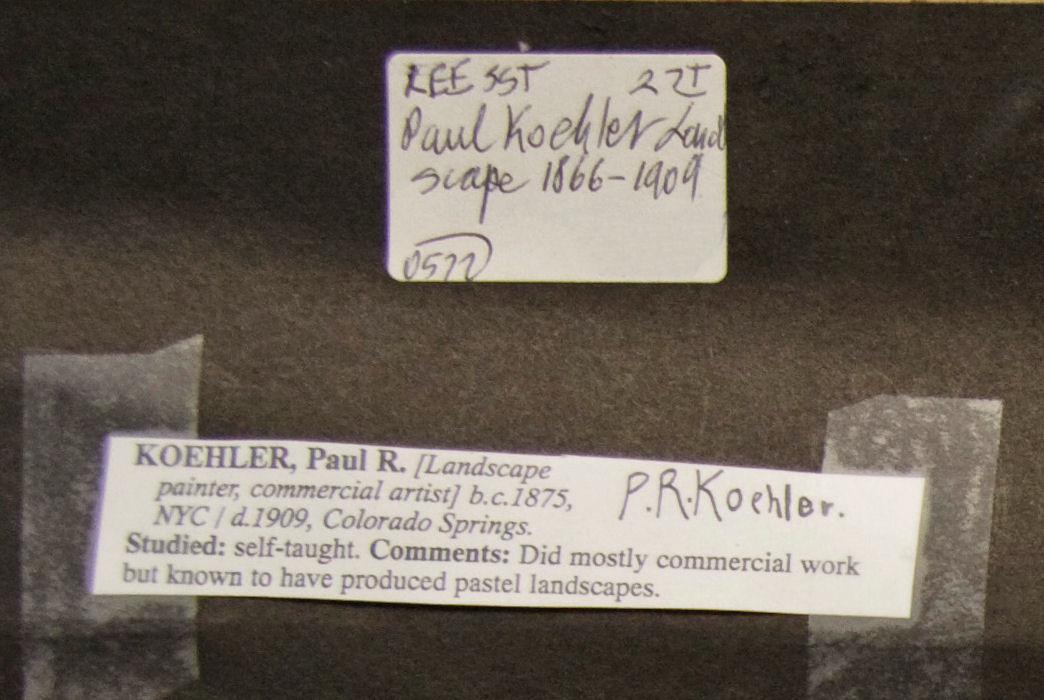 REE SST 22T
Paul Koehler Land
scape 1866-1909
0522
KOEHLER, Paul R. [Landscape
painter, commercial artist] b.c.1875,
NYC / d.1909, Colorado Springs.
P.R.Koehler.
Studied: self-taught. Comments: Did mostly commercial work
but known to have produced pastel landscapes.